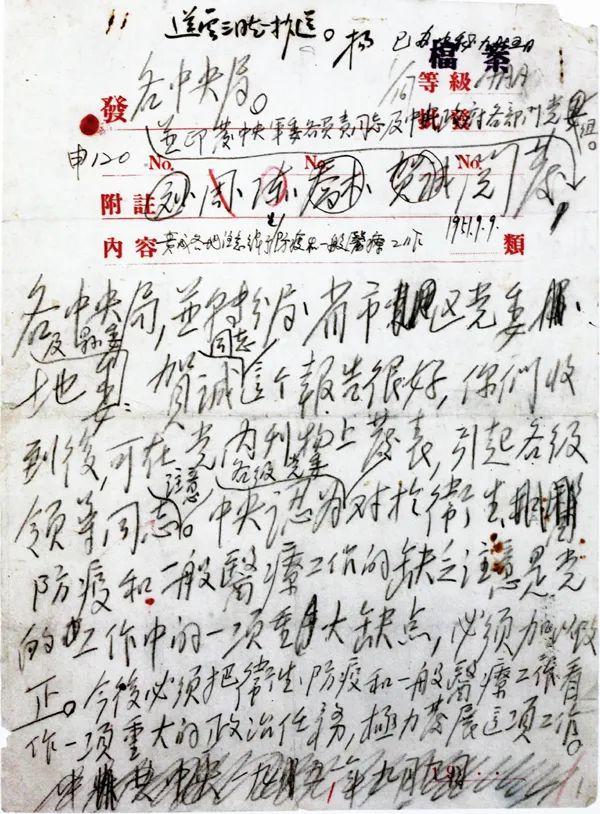 送云三时抄送。杨
檔案
各中央局。
發
等級
並印發中央軍委各負責同志及中央政府各部門党組。
申120
No. No. No.
附註
刘 周 陈 春 林 賀誠 閱 發
內容 責成各地注意衛生防疫和一般醫療工作 1951.9.9. 類
各中央局,並轉分局,省市區党委
及县委 同志
地委:賀誠這个報告很好,你們收
到後,可在党內刊物上發表,引起各級
注意 各級党委
領導同志。中央認为对於衛生
防疫和一般醫療工作的缺乏注意是党
的工作中的一項重大缺点,必須加以改
正。今後必須把衛生、防疫和一般醫療工作看
作一項重大的政治任務,極力發展這項工作。
中共中央 一九五一年九月九日